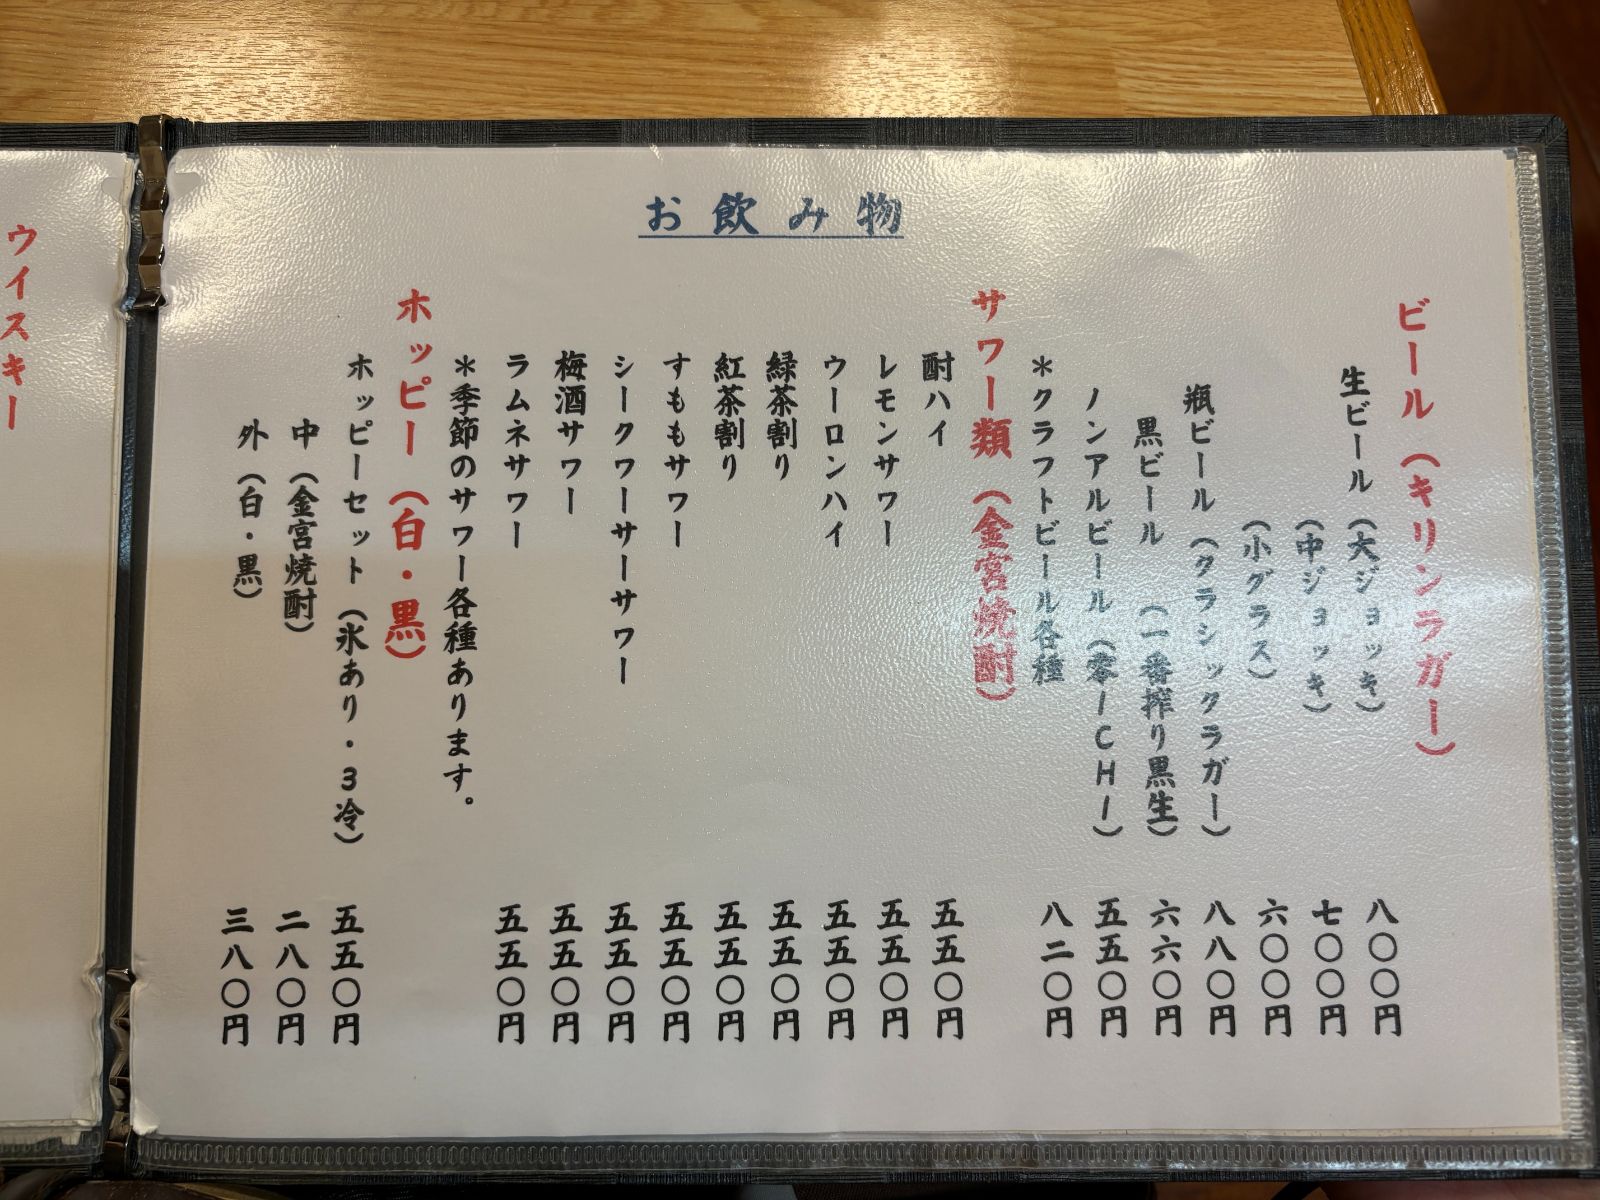 お飲み物
ビール（キリンラガー）
生ビール（大ジョッキ） 八〇〇円
（中ジョッキ） 七〇〇円
（小グラス） 六〇〇円
瓶ビール（クラシックラガー） 八八〇円
黒ビール（一番搾り黒生） 六六〇円
ノンアルビール（零ーCHI） 五五〇円
＊クラフトビール各種 八二〇円
サワー類（金宮焼酎）
酎ハイ 五五〇円
レモンサワー 五五〇円
ウーロンハイ 五五〇円
緑茶割り 五五〇円
紅茶割り 五五〇円
すももサワー 五五〇円
シークワーサーサワー 五五〇円
梅酒サワー 五五〇円
ラムネサワー 五五〇円
＊季節のサワー各種あります。
ホッピー（白・黒）
ホッピーセット（氷あり・3冷） 五五〇円
中（金宮焼酎） 二八〇円
外（白・黒） 三八〇円
ウイスキー